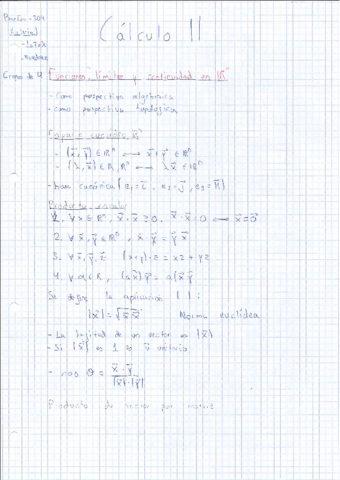 Cálculo II
Grupos de 4 Funciones, límites y continuidad en ℝⁿ
- como perspectiva algebraica
- como perspectiva topológica
Espacio euclídeo ℝⁿ
- (x⃗, y⃗) ∈ ℝⁿ ⟼ x⃗+y⃗ ∈ ℝⁿ
- (λ, x⃗) ∈ ℝ, ℝⁿ ⟼ λx⃗ ∈ ℝⁿ
- base canónica (e₁=i⃗, e₂=j⃗, e₃=k⃗)
Producto escalar
1. ∀x∈ℝⁿ, x⃗·x⃗ ≥ 0. x⃗·x⃗=0 ⟷ x⃗=0⃗
2. ∀x⃗,y⃗∈ℝⁿ, x⃗·y⃗ = y⃗·x⃗
3. ∀x⃗,y⃗,z⃗ (x+y)·z = xz + yz
4. ∀a∈ℝ, (ax⃗)y⃗ = a(x⃗y⃗
Se define la aplicación | | :
|x⃗| = √x⃗x⃗ Norma euclídea
- La longitud de un vector es |x⃗|
- Si |x⃗| es 1 es unitario
- cos θ = x⃗·y⃗ / |x⃗|·|y⃗|
Producto de vector por